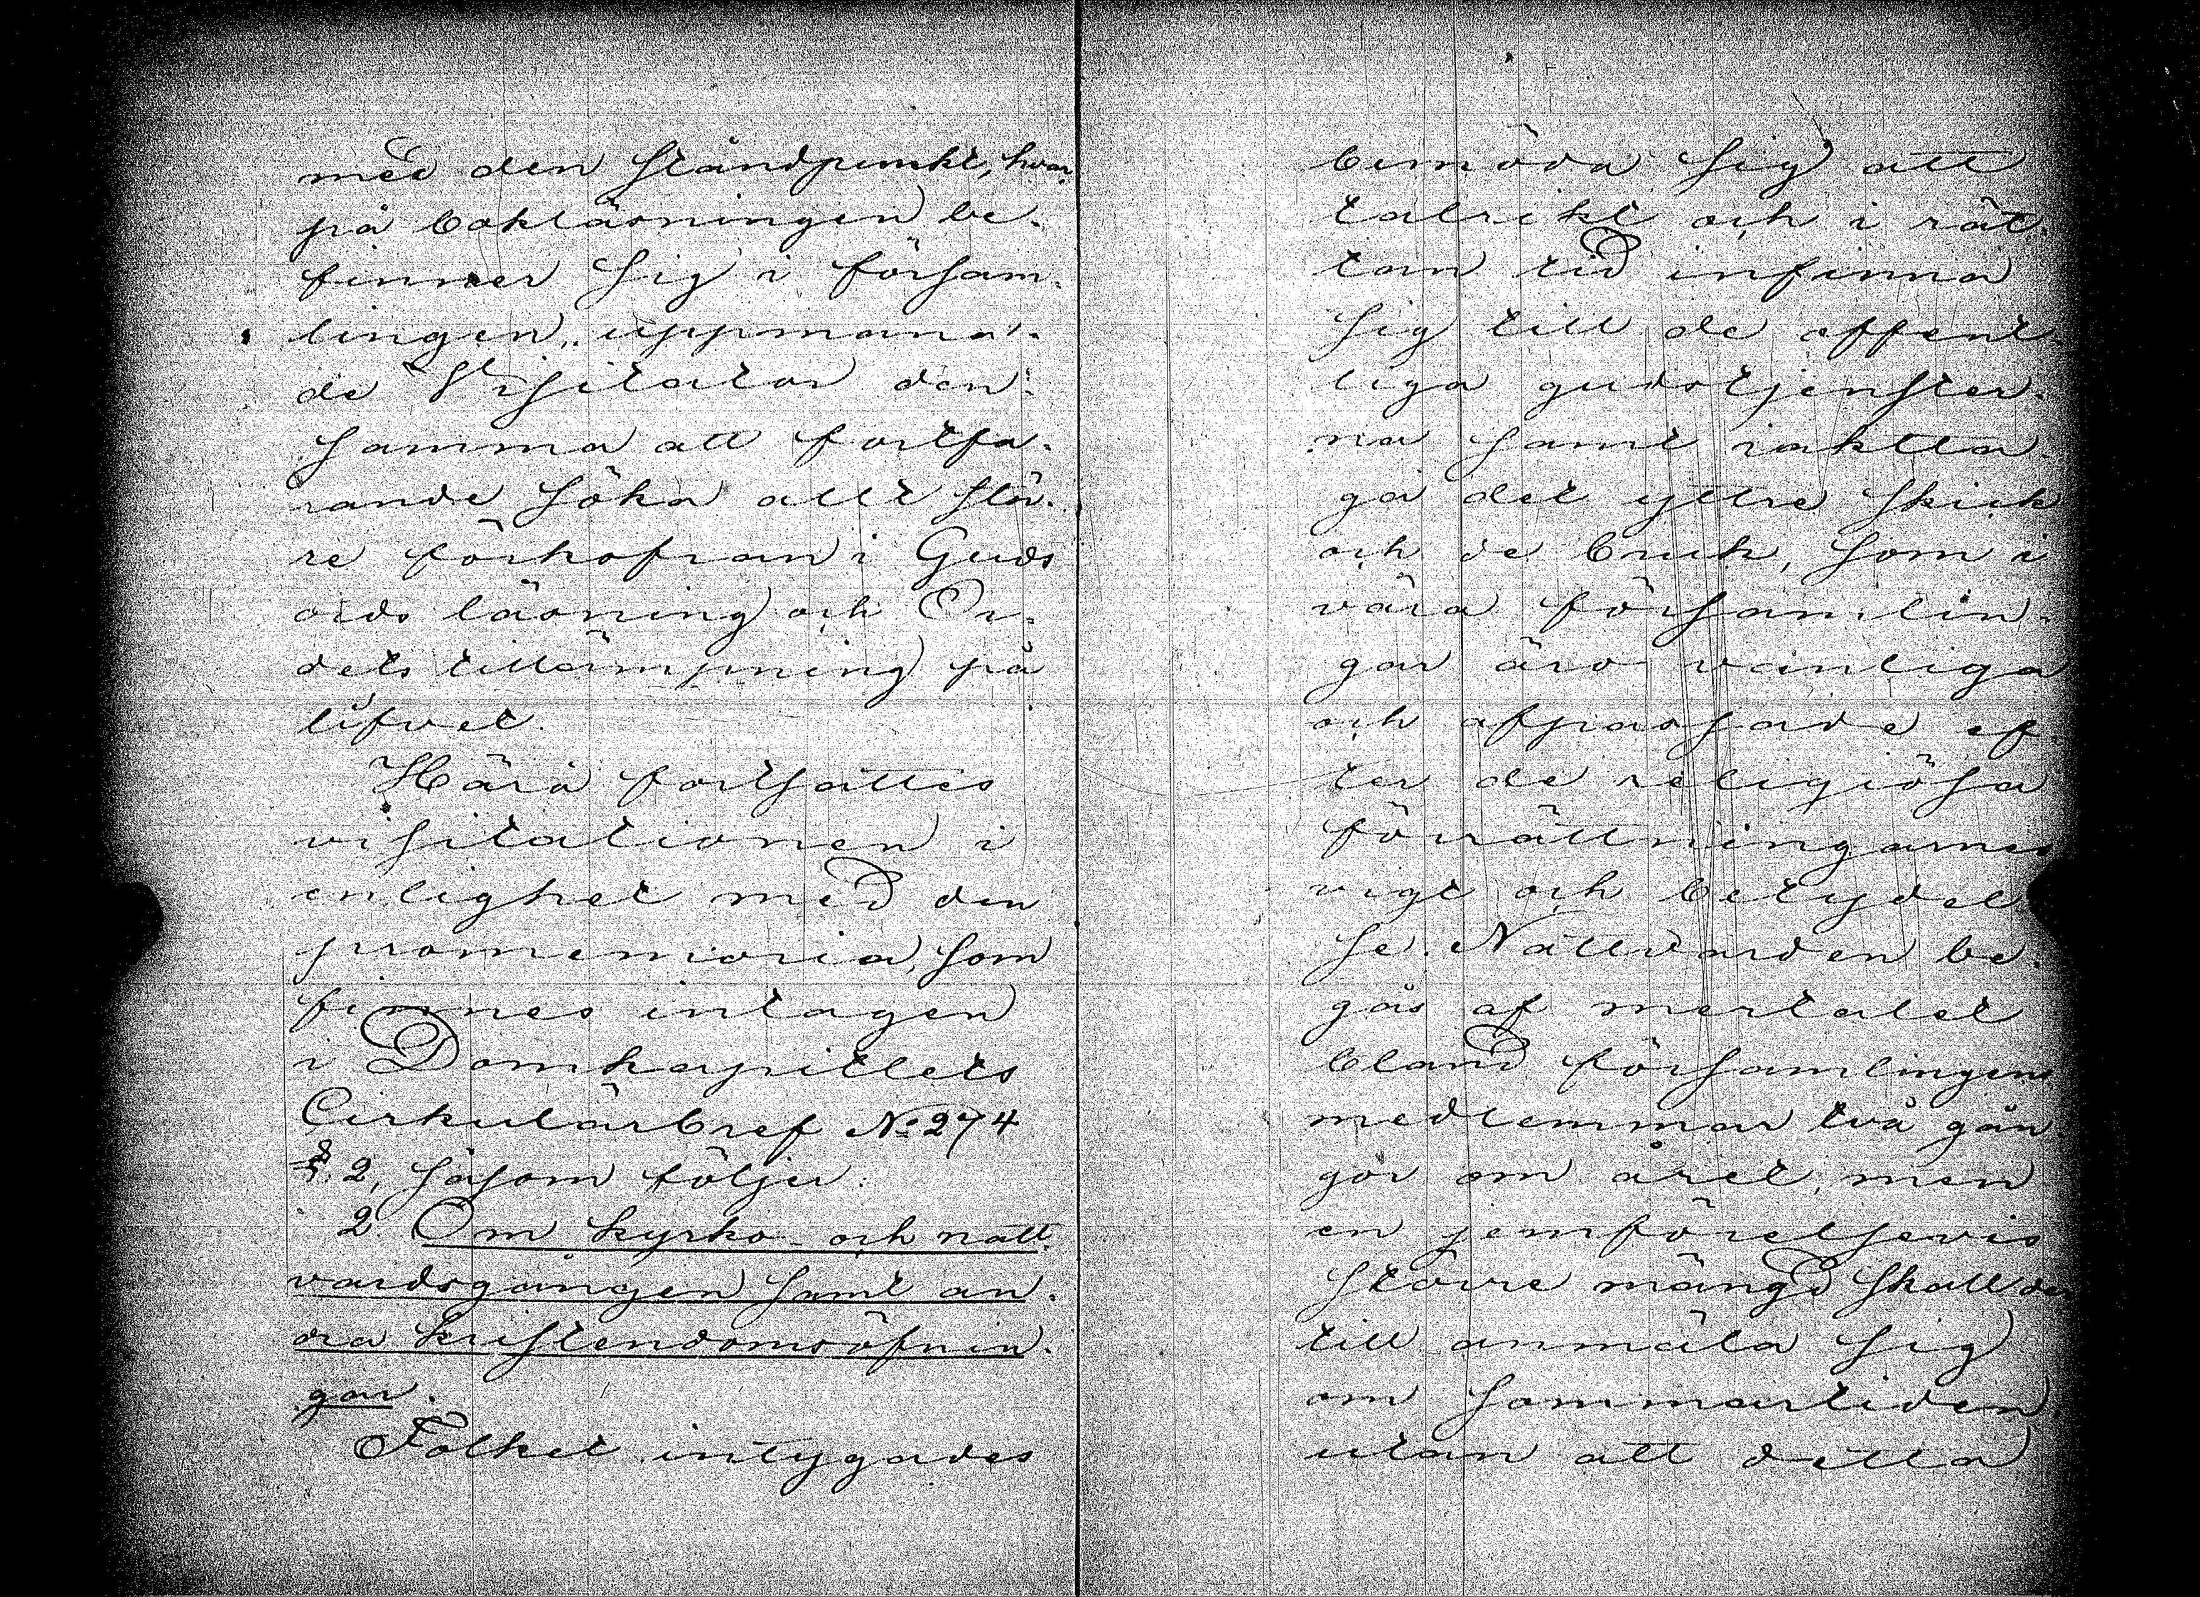 med den ståndpunkt, hvar-
på bokläsningen be-
finner sig i försam-
lingen, uppmana-
de Visitator den-
samma att fortfa-
rande söka allt stör-
re förkofran i Guds
ords läsning och Or-
dets tillämpning på
lifvet.
Härå fortsattes
visitationen i
enlighet med den
promemoria, som
finnes intagen
i Domkapitlets
Cirkulärbref No 274
§. 2, såsom följer:
2. Om kyrko- och natt-
vardsgången samt an-
dra kristendomsöfnin-
gar.
Folket intygades
bemöda sig att
talrikt och i rät-
tan tid infinna
sig till de offent-
liga gudstjenster-
na samt iaktta-
ga det yttre skick
och de bruk, som i
våra församlin-
gar äro vanliga
och afpassade ef-
ter de religiösa
förrättningarnes
vigt och betydel-
se. Nattvarden be-
gås af mertalet
bland församlingens
medlemmar två gån-
gor om året, men
en jemförelsevis
större mängd skall der
till anmäla sig
om sommartiden,
utan att detta